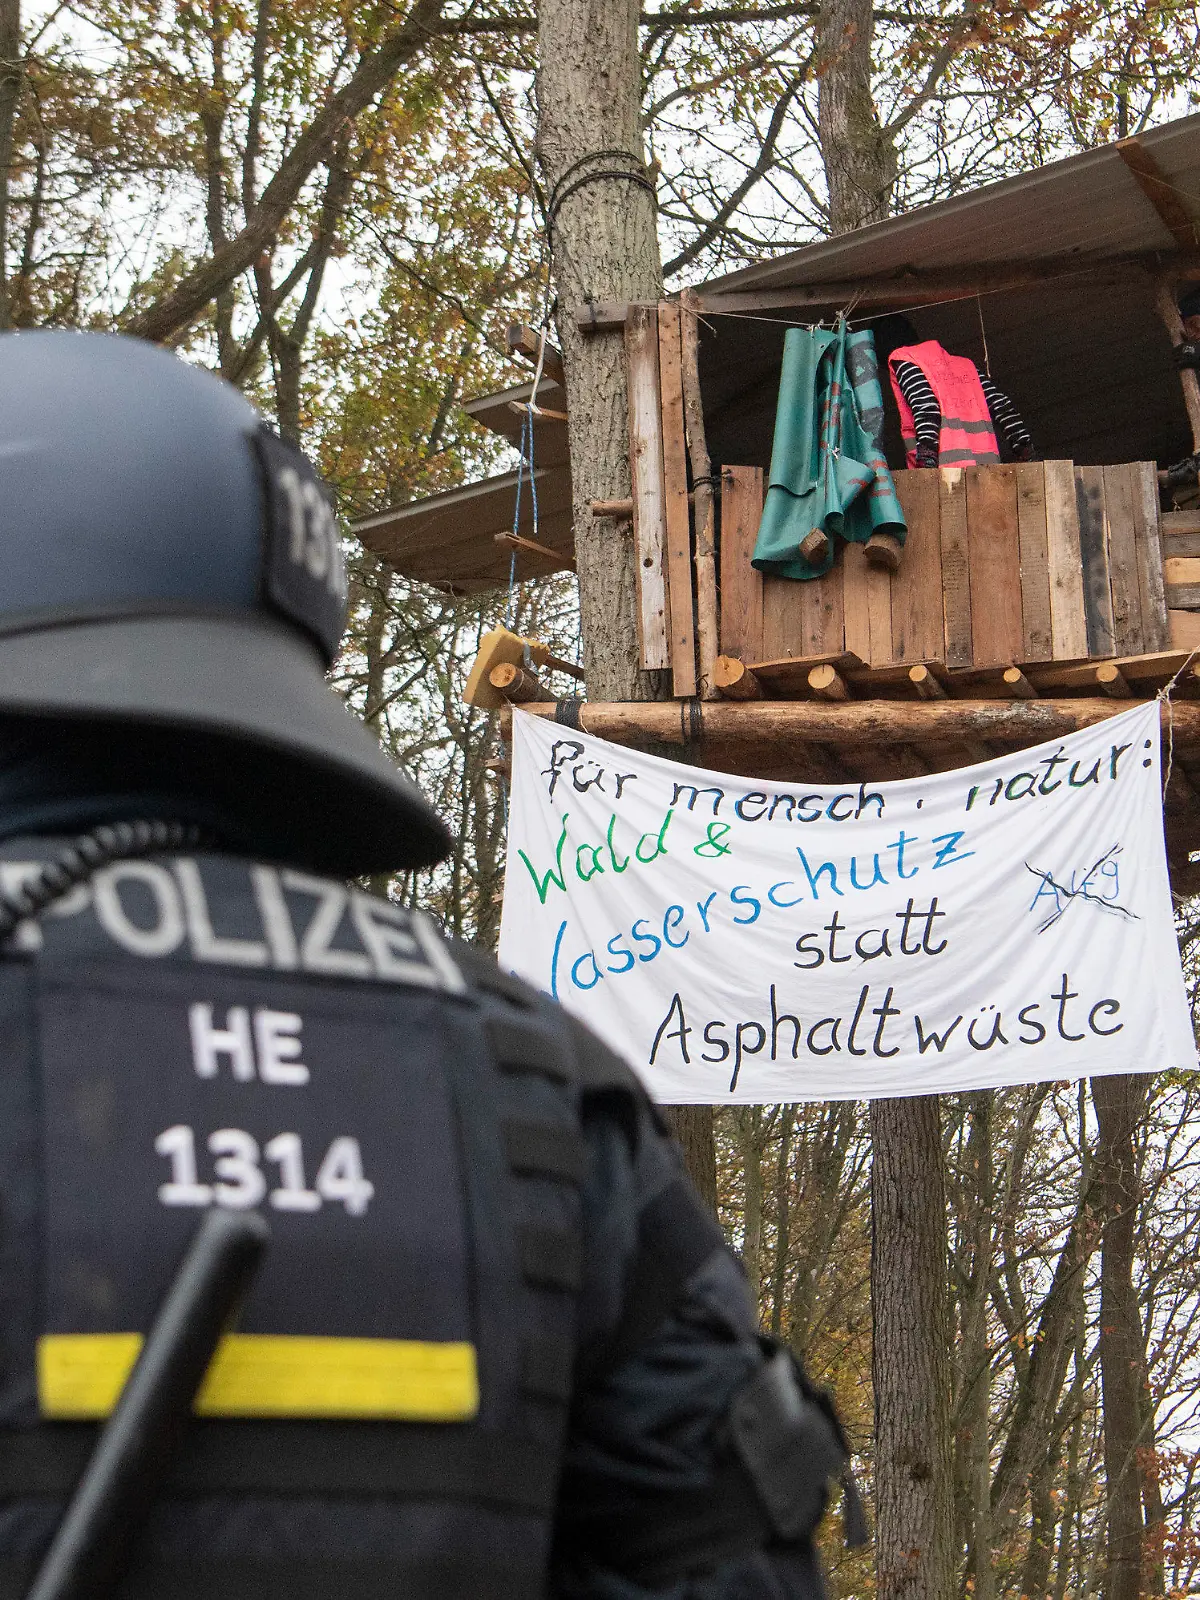 für mensch . natur:
Wald &
Wasserschutz
statt
Asphaltwüste
A49
POLIZEI
HE
1314